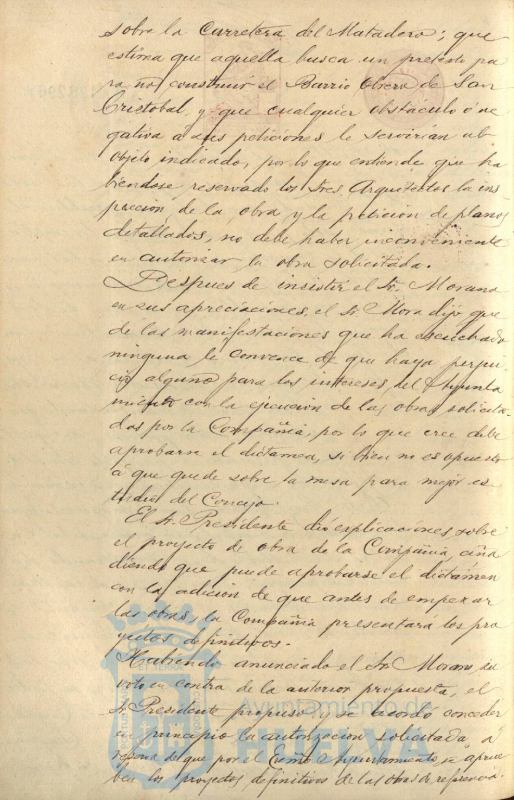 sobre la Carretera del Matadero; que
estima que aquella busca un pretesto pa
ra no construir el Barrio Obrero de San
Cristobal, y que cualquier obstáculo ó ne
gativa a sus peticiones le servirian al
objeto indicado, por lo que entiende que ha
biendose reservado los Sres. Arquitectos la ins
peccion de la obra y la peticion de planos
detallados, no debe haber inconveniente
en autorizar la obra solicitada.
Despues de insistir el Sr. Morano
en sus apreciaciones, el Sr. Mora dijo que
de las manifestaciones que ha escuchado
ninguna le convence de que haya perjui
cio alguno para los intereses del Ayunta
miento con la ejecucion de las obras solicita
dos por la Compañia, por lo que cree debe
aprobarse el dictamen, si bien no es opuesto
á que quede sobre la mesa para mejor es
tudio del Concejo.
El Sr. Presidente dió explicaciones sobre
el proyecto de obra de la Compañia, aña
diendo que puede aprobarse el dictámen
con la adicion de que antes de empezar
las obras, la Compañia presentará los pro
yectos definitivos.
Habiendo anunciado el Sr. Morano su
voto en contra de la anterior propuesta, el
Sr. Presidente propuso y se acordo conceder
en principio la autorizacion solicitada á
reserva de que por el Excmo Ayuntamiento se aprue
ben los proyectos definitivos de las obras de referencia.
Ayuntamiento de
HUELVA